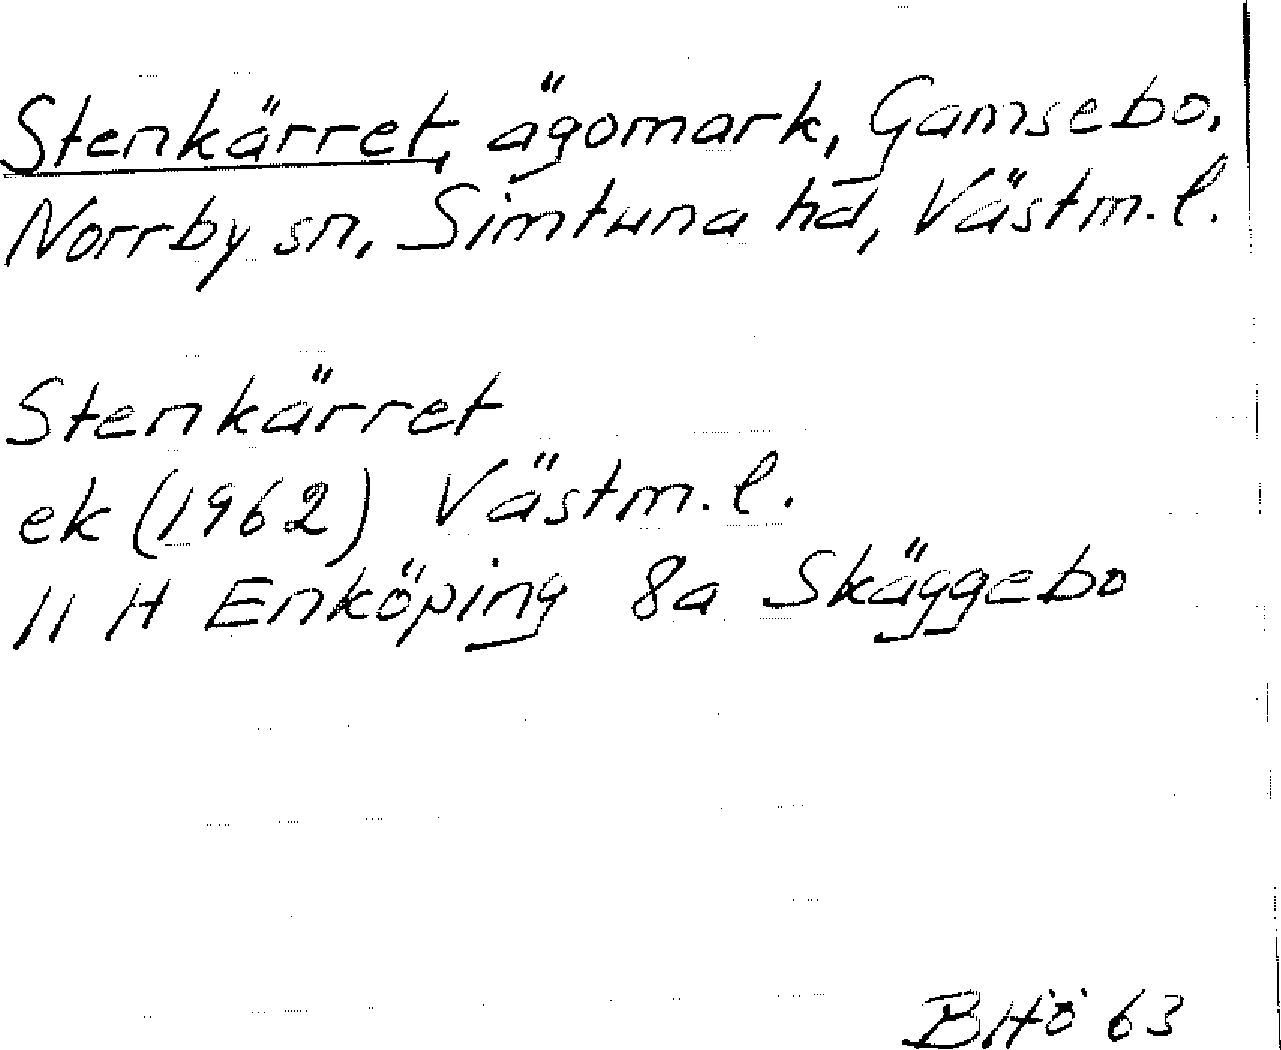 Stenkärret, ägomark, Gamsebo,
Norrby sn, Simtuna hd, Västm. l.
Stenkärret
ek (1962) Västm. l.
11 H Enköping 8a Skäggebo
BHö 63